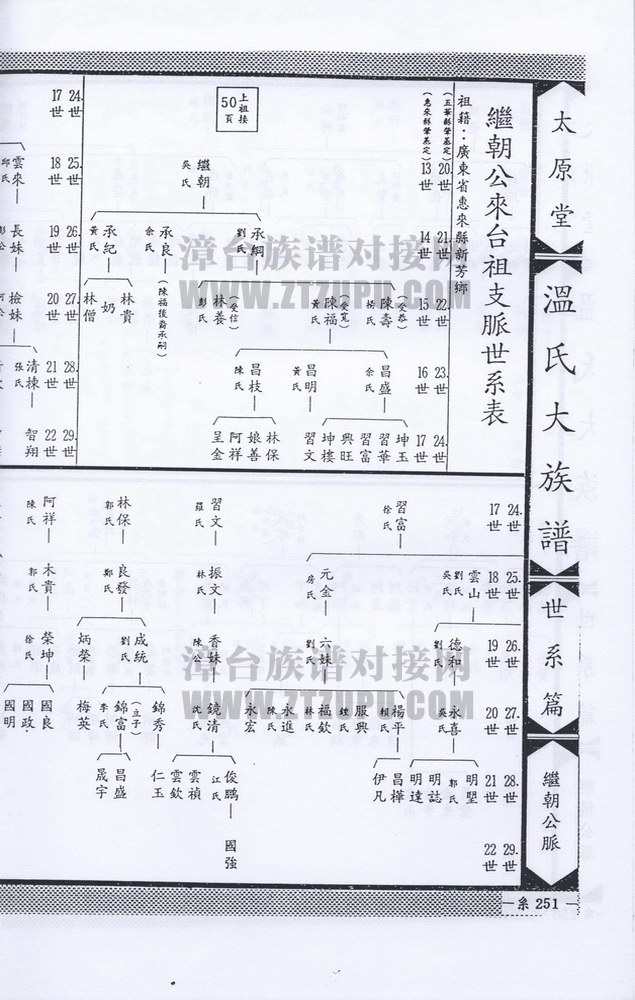 太原堂
溫氏大族譜
世系篇
繼朝公脈
繼朝公來台祖支脈世系表
祖籍：廣東省惠來縣新芳鄉
(五華縣肇基定) 20世 21世 22世 23世 24世
(惠來縣肇基定) 13世 14世 15世 16世 17世
上祖接50頁
繼朝
吳氏
承綱 劉氏
承良 余氏
(陳福後裔承嗣)
承紀 黃氏
陳壽 (受恭) 楊氏
陳福 (受寬) 黃氏
林養 (受信) 彭氏
林貴
奶
林僧
昌盛 余氏
昌明 黃氏
昌枝 陳氏
坤玉
習華
習富
興旺
坤樓
習文
林保
娘善
阿祥
呈金
24.世 25.世 26.世 27.世 28.世 29.世
17世 18世 19世 20世 21世 22世
雲來 邱氏
長妹
撿妹
清棟 張氏
智翔
24.世 25.世 26.世 27.世 28.世 29.世
17世 18世 19世 20世 21世 22世
習富 徐氏
雲山 劉氏 吳氏
元金 房氏
德和 劉氏
六妹 劉氏
永喜 吳氏
楊平 賴氏
服興 鍾氏
福欽 林氏
永進 陳氏
永宏
明堅 郭氏
明誌
明達
昌樺
伊凡
習文 羅氏
振文 林氏
香妹 陳公
鏡清 沈氏
俊鵬 江氏
雲禎
雲欽
國強
林保 郭氏
良發 鄭氏
成統 劉氏
炳榮
錦秀
錦富 (立子) 李氏
梅英
仁玉
昌盛
晟宇
阿祥 陳氏
木貴 郭氏
榮坤 徐氏
國良
國政
國明
系 251
漳台族谱对接网
WWW.ZTZUPU.COM
漳台族谱对接网
WWW.ZTZUPU.COM